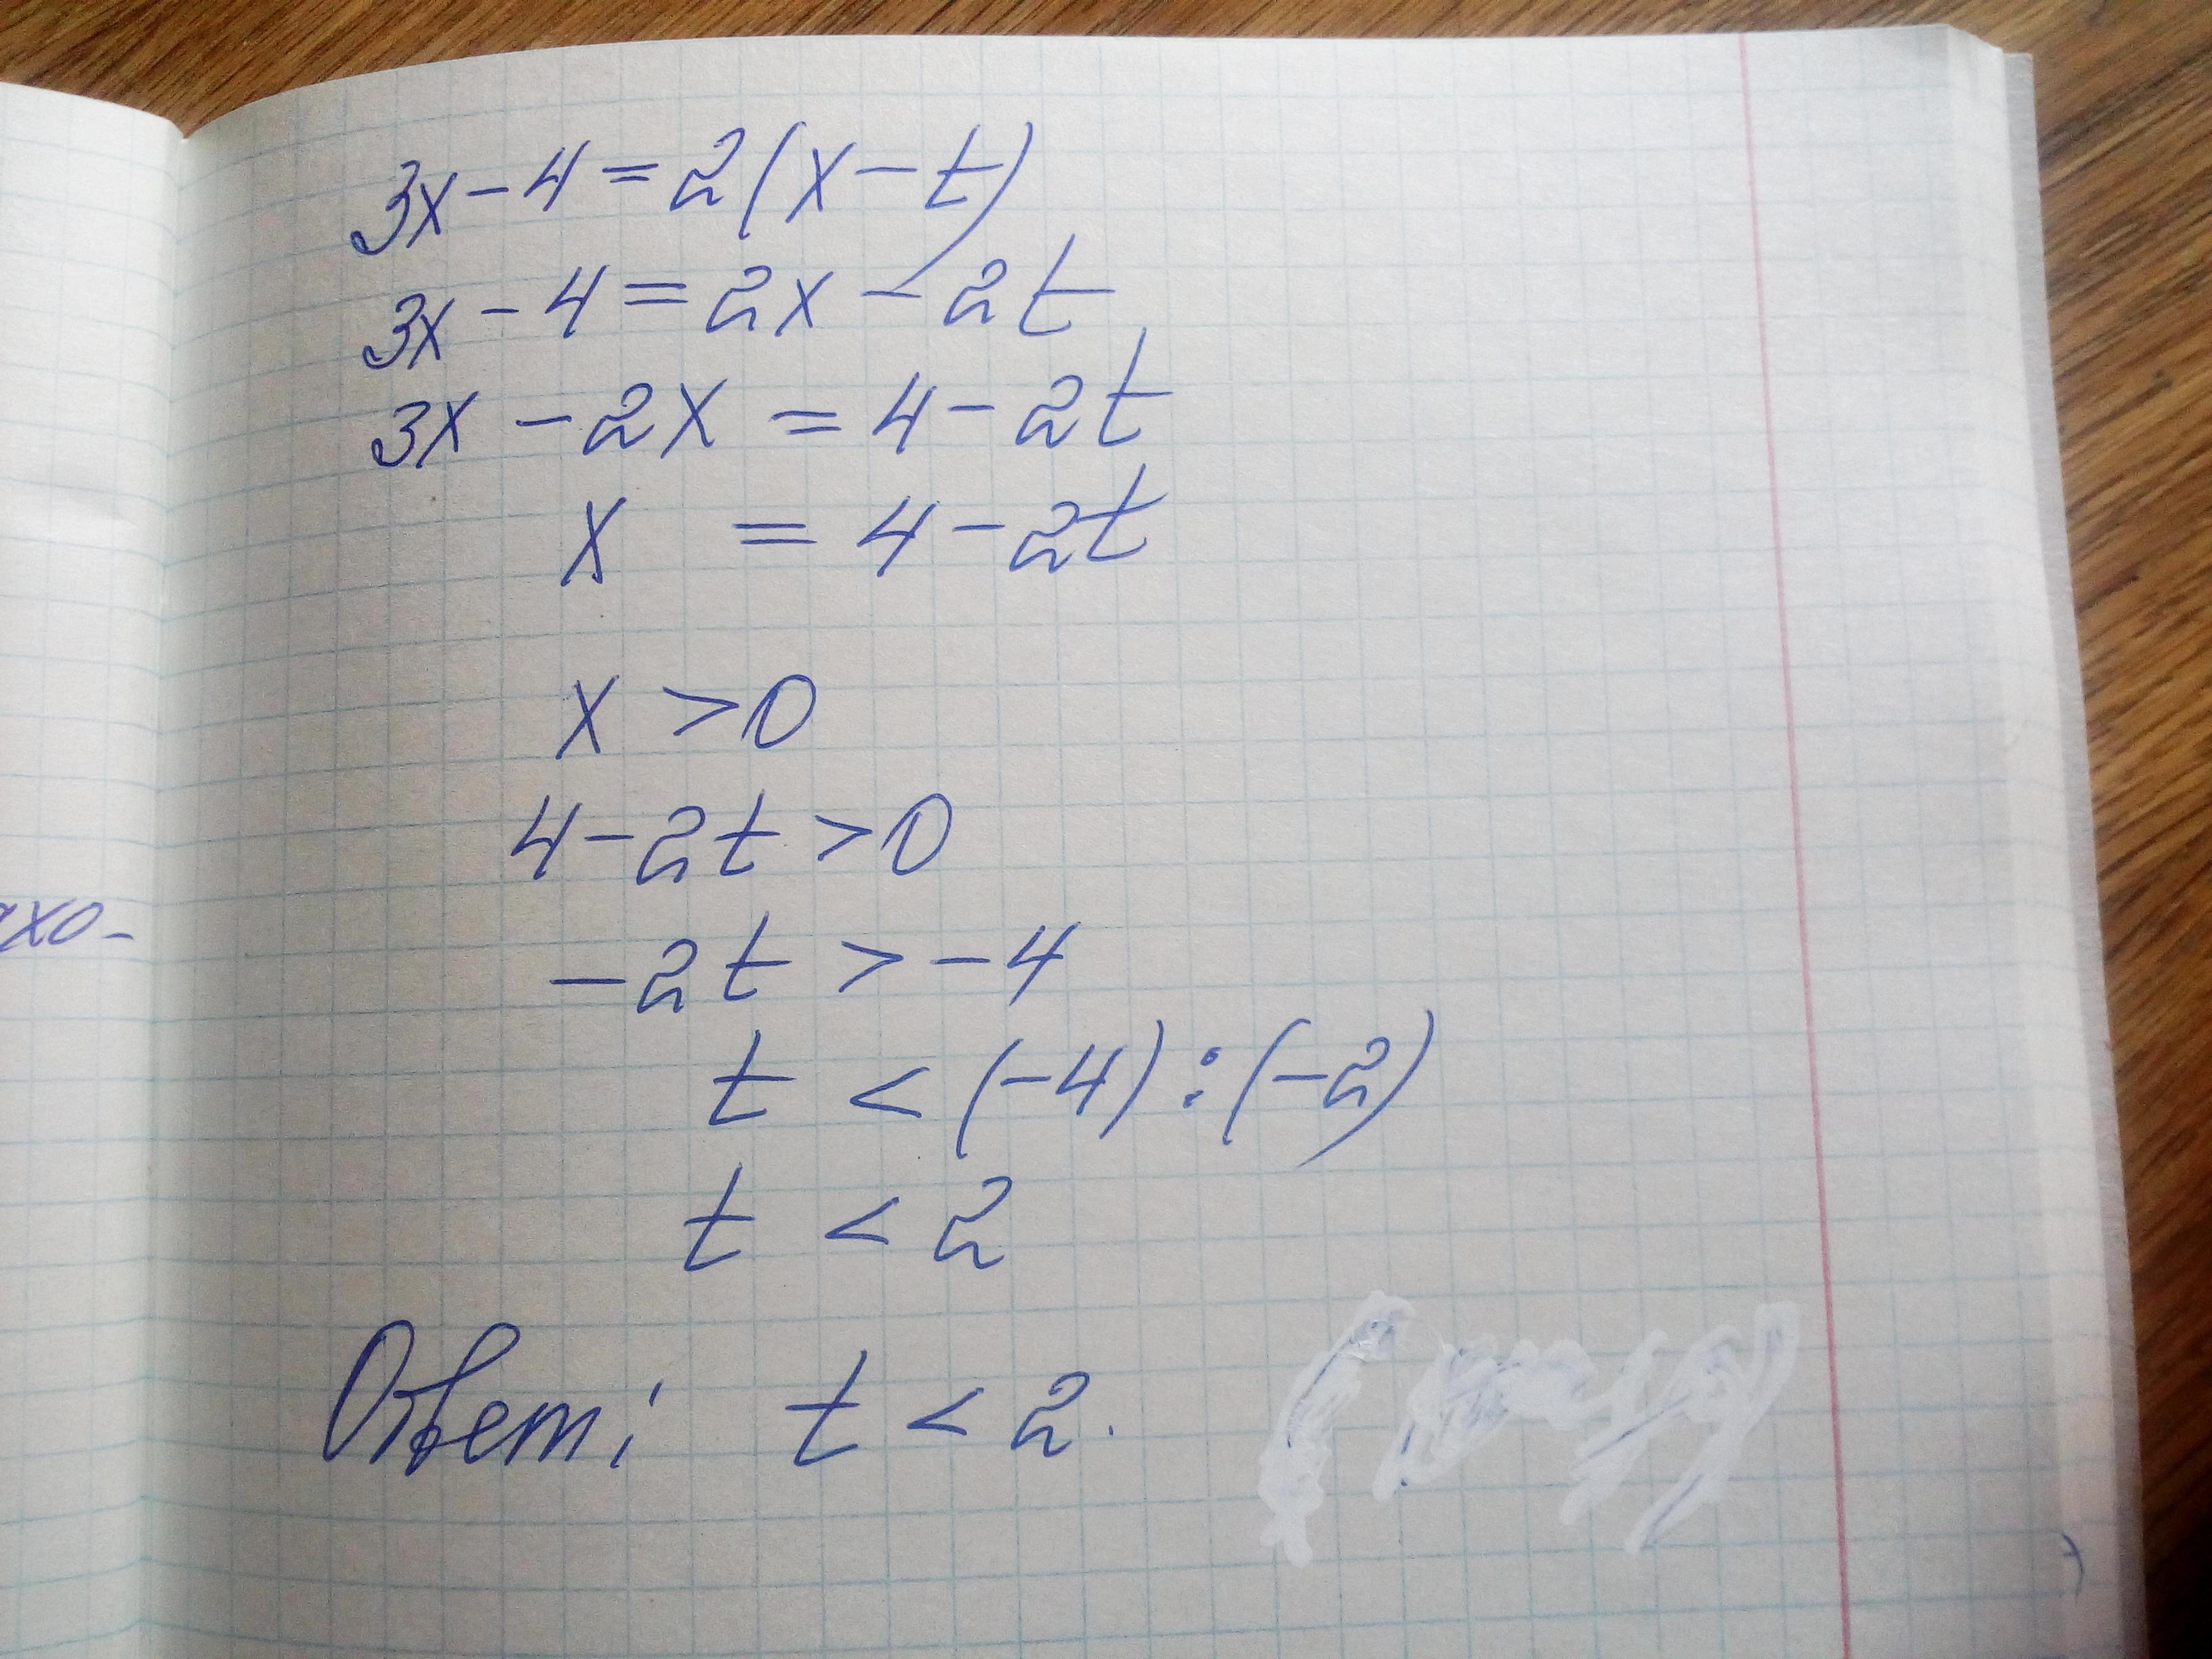 3x - 4 = 2(x - t)
3x - 4 = 2x - 2t
3x - 2x = 4 - 2t
x = 4 - 2t
x > 0
4 - 2t > 0
-2t > -4
t < (-4) : (-2)
t < 2
Ответ: t < 2.